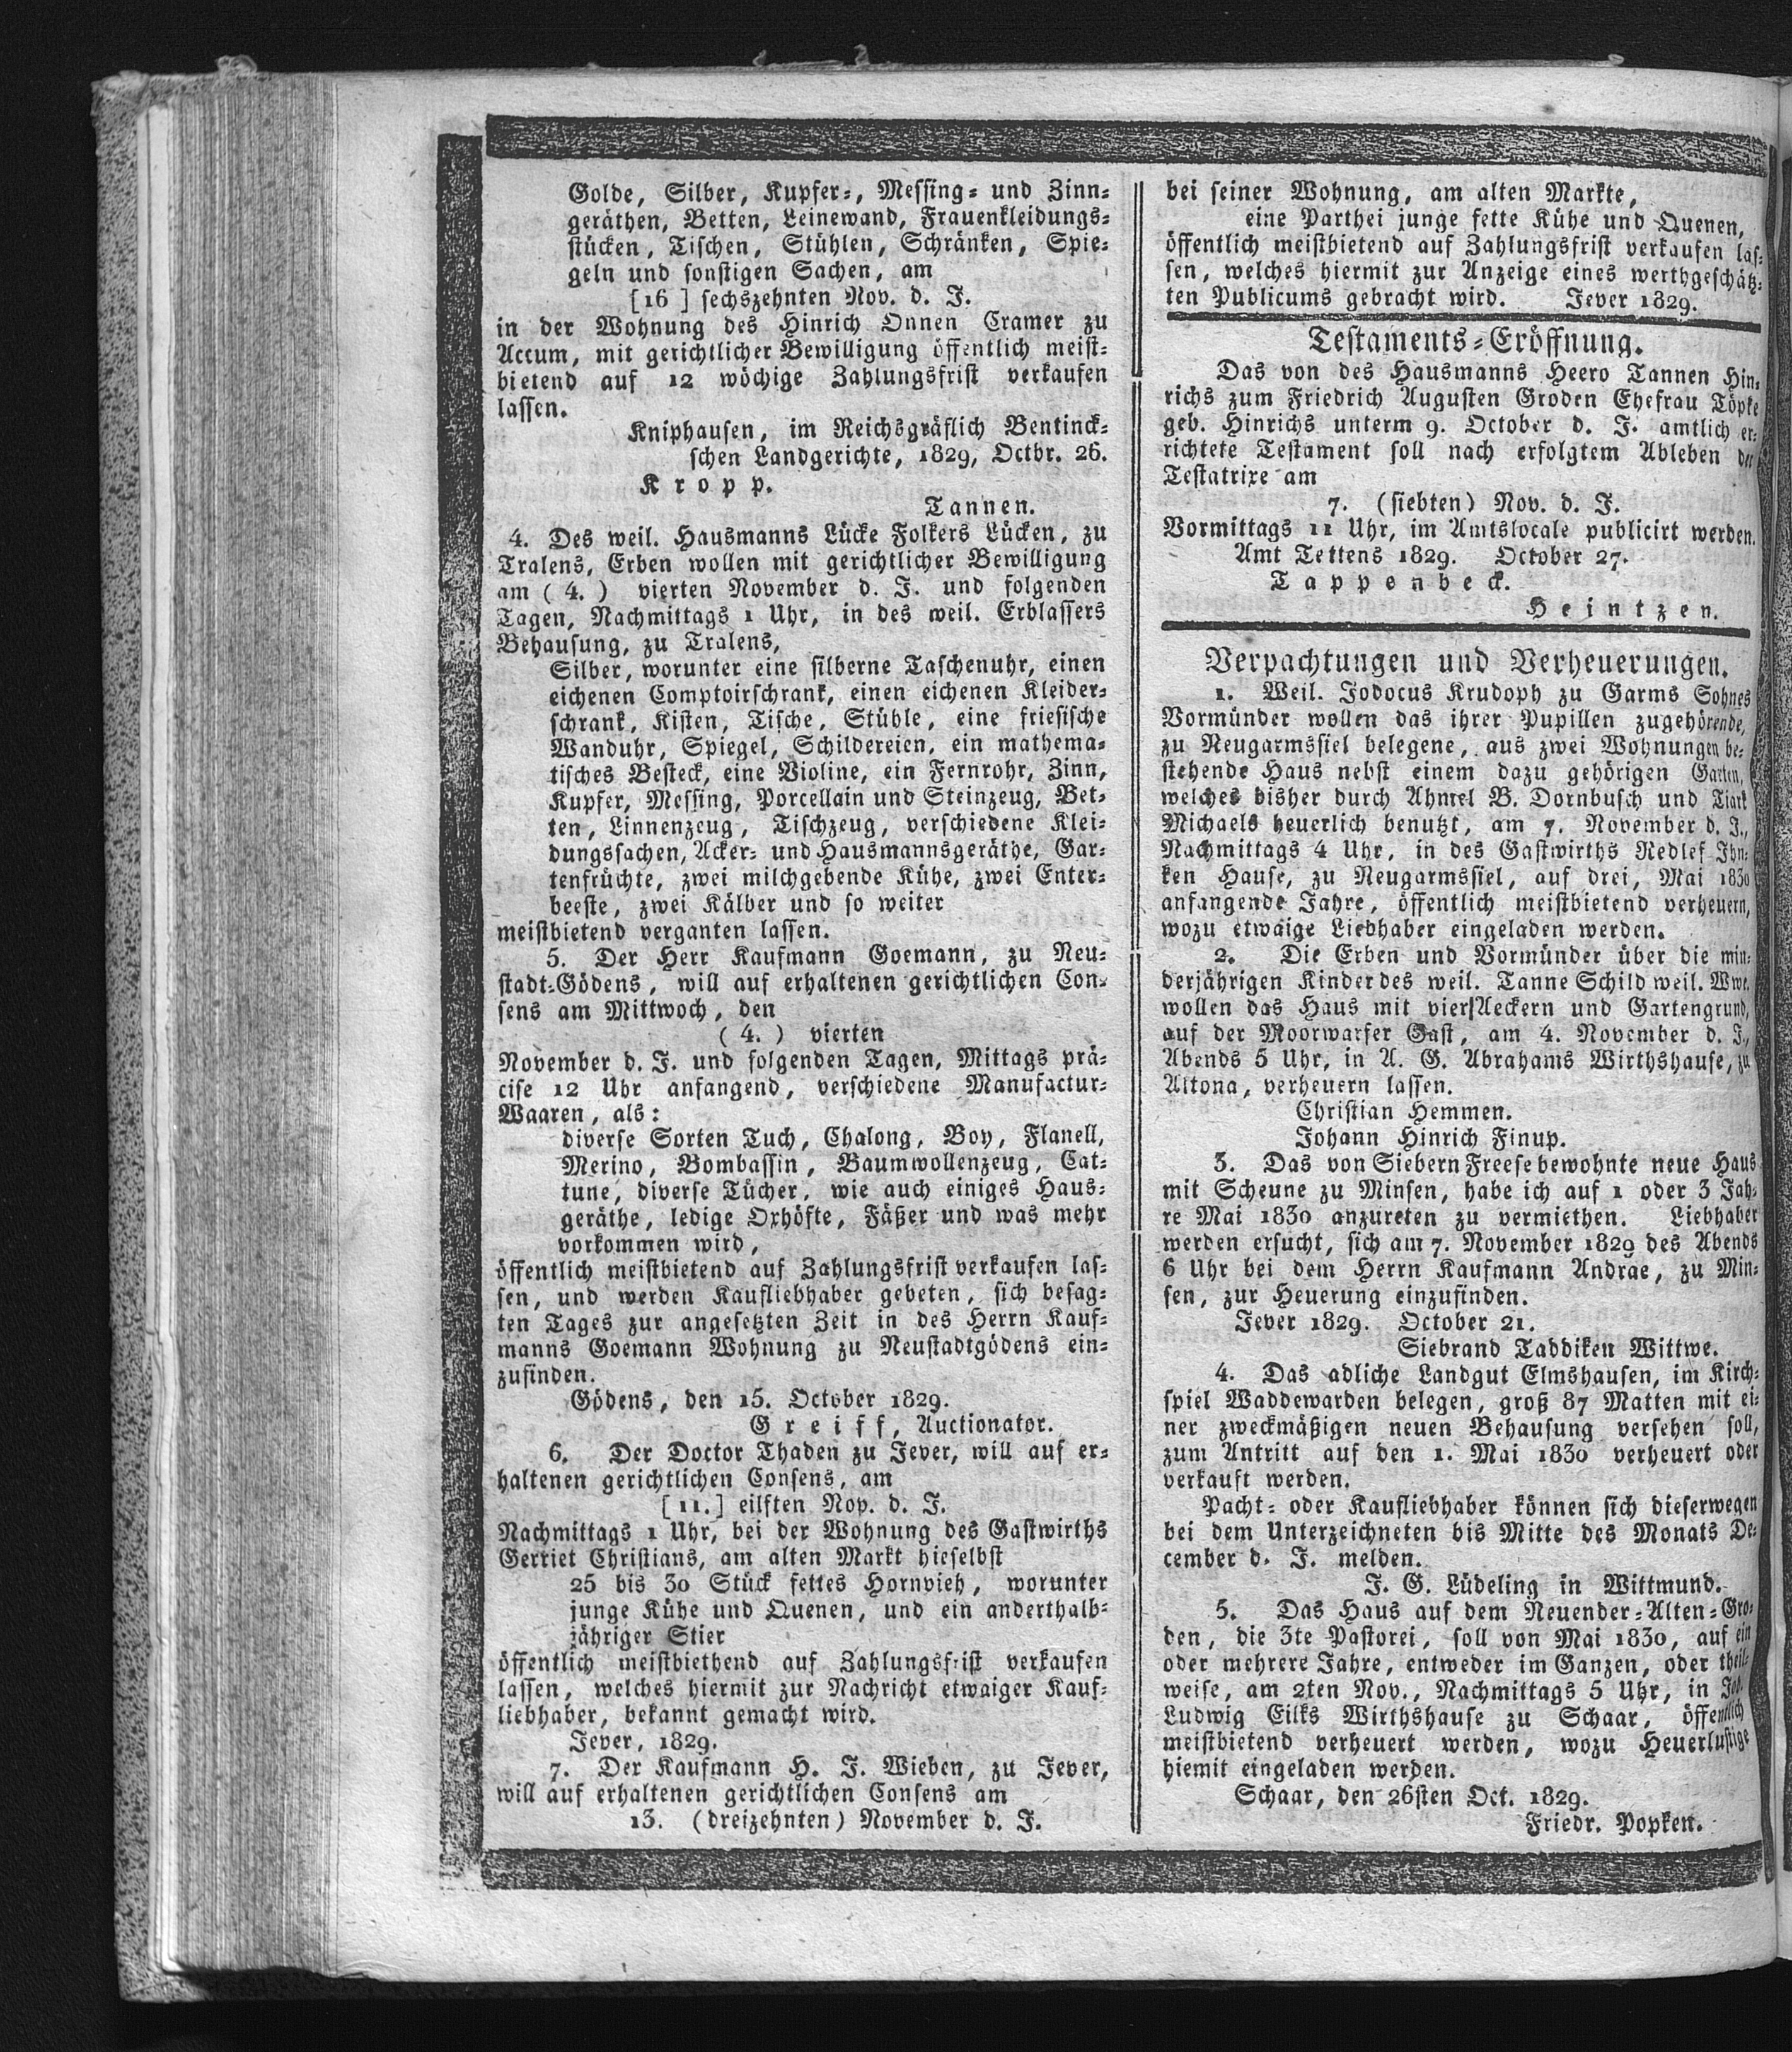 Golde, Silber, Kupfer-, Messing- und Zinn-
geräthen, Betten, Leinewand, Frauenkleidungs-
stücken, Tischen, Stühlen, Schränken, Spie-
geln und sonstigen Sachen, am
[16] sechszehnten Nov. d. J.
in der Wohnung des Hinrich Onnen Cramer zu
Accum, mit gerichtlicher Bewilligung öffentlich meist-
bietend auf 12 wöchige Zahlungsfrist verkaufen
lassen.
Kniphausen, im Reichsgräflich Bentinck-
schen Landgerichte, 1829, Octbr. 26.
Kropp.
Tannen.
4. Des weil. Hausmanns Lücke Folkers Lücken, zu
Tralens, Erben wollen mit gerichtlicher Bewilligung
am (4.) vierten November d. J. und folgenden
Tagen, Nachmittags 1 Uhr, in des weil. Erblassers
Behausung, zu Tralens,
Silber, worunter eine silberne Taschenuhr, einen
eichenen Comptoirschrank, einen eichenen Kleider-
schrank, Kisten, Tische, Stühle, eine friesische
Wanduhr, Spiegel, Schildereien, ein mathema-
tisches Besteck, eine Violine, ein Fernrohr, Zinn,
Kupfer, Messing, Porcellain und Steinzeug, Bet-
ten, Linnenzeug, Tischzeug, verschiedene Klei-
dungssachen, Acker- und Hausmannsgeräthe, Gar-
tenfrüchte, zwei milchgebende Kühe, zwei Enter-
beeste, zwei Kälber und so weiter
meistbietend verganten lassen.
5. Der Herr Kaufmann Goemann, zu Neu-
stadt-Gödens, will auf erhaltenen gerichtlichen Con-
sens am Mittwoch, den
(4.) vierten
November d. J. und folgenden Tagen, Mittags prä-
cise 12 Uhr anfangend, verschiedene Manufactur-
Waaren, als:
diverse Sorten Tuch, Chalong, Boy, Flanell,
Merino, Bombassin, Baumwollenzeug, Cat-
tune, diverse Tücher, wie auch einiges Haus-
geräthe, ledige Oxhöfte, Fäßer und was mehr
vorkommen wird,
öffentlich meistbietend auf Zahlungsfrist verkaufen las-
sen, und werden Kaufliebhaber gebeten, sich besag-
ten Tages zur angesetzten Zeit in des Herrn Kauf-
manns Goemann Wohnung zu Neustadtgödens ein-
zufinden.
Gödens, den 15. October 1829.
Greiff, Auctionator.
6. Der Doctor Thaden zu Jever, will auf er-
haltenen gerichtlichen Consens, am
[11.] eilften Nov. d. J.
Nachmittags 1 Uhr, bei der Wohnung des Gastwirths
Gerriet Christians, am alten Markt hieselbst
25 bis 30 Stück fettes Hornvieh, worunter
junge Kühe und Quenen, und ein anderthalb-
jähriger Stier
öffentlich meistbiethend auf Zahlungsfrist verkaufen
lassen, welches hiermit zur Nachricht etwaiger Kauf-
liebhaber, bekannt gemacht wird.
Jever, 1829.
7. Der Kaufmann H. J. Wieben, zu Jever,
will auf erhaltenen gerichtlichen Consens am
13. (dreizehnten) November d. J.
bei seiner Wohnung, am alten Markte,
eine Parthei junge fette Kühe und Quenen,
öffentlich meistbietend auf Zahlungsfrist verkaufen las-
sen, welches hiermit zur Anzeige eines werthgeschätz-
ten Publicums gebracht wird. Jever 1829.
Testaments-Eröffnung.
Das von des Hausmanns Heero Tannen Hin-
richs zum Friedrich Augusten Groden Ehefrau Töpke
geb. Hinrichs unterm 9. October d. J. amtlich er-
richtete Testament soll nach erfolgtem Ableben der
Testatrixe am
7. (siebten) Nov. d. J.
Vormittags 11 Uhr, im Amtslocale publicirt werden.
Amt Tettens 1829. October 27.
Tappenbeck.
Heintzen.
Verpachtungen und Verheuerungen.
1. Weil. Jodocus Krudoph zu Garms Sohnes
Vormünder wollen das ihrer Pupillen zugehörende,
zu Neugarmssiel belegene, aus zwei Wohnungen be-
stehende Haus nebst einem dazu gehörigen Garten,
welches bisher durch Ahmel B. Dornbusch und Tiark
Michaels heuerlich benutzt, am 7. November d. J.,
Nachmittags 4 Uhr, in des Gastwirths Redlef Ihn-
ken Hause, zu Neugarmssiel, auf drei, Mai 1830
anfangende Jahre, öffentlich meistbietend verheuern,
wozu etwaige Liebhaber eingeladen werden.
2. Die Erben und Vormünder über die min-
derjährigen Kinder des weil. Tanne Schild weil. Wwe.
wollen das Haus mit vier Aeckern und Gartengrund,
auf der Moorwarfer Gast, am 4. November d. J.,
Abends 5 Uhr, in A. G. Abrahams Wirthshause, zu
Altona, verheuern lassen.
Christian Hemmen.
Johann Hinrich Finup.
3. Das von Siebern Freese bewohnte neue Haus
mit Scheune zu Minsen, habe ich auf 1 oder 3 Jah-
re Mai 1830 anzureten zu vermiethen. Liebhaber
werden ersucht, sich am 7. November 1829 des Abends
6 Uhr bei dem Herrn Kaufmann Andrae, zu Min-
sen, zur Heuerung einzufinden.
Jever 1829. October 21.
Siebrand Taddiken Wittwe.
4. Das adliche Landgut Elmshausen, im Kirch-
spiel Waddewarden belegen, groß 87 Matten mit ei-
ner zweckmäßigen neuen Behausung versehen soll,
zum Antritt auf den 1. Mai 1830 verheuert oder
verkauft werden.
Pacht- oder Kaufliebhaber können sich dieserwegen
bei dem Unterzeichneten bis Mitte des Monats De-
cember d. J. melden.
J. G. Lüdeling in Wittmund.
5. Das Haus auf dem Neuender-Alten-Gro-
den, die 3te Pastorei, soll von Mai 1830, auf ein
oder mehrere Jahre, entweder im Ganzen, oder theil-
weise, am 2ten Nov., Nachmittags 5 Uhr, in
Ludwig Eilks Wirthshause zu Schaar, öffentlich
meistbietend verheuert werden, wozu Heuerlustige
hiemit eingeladen werden.
Schaar, den 26sten Oct. 1829.
Friedr. Popken.